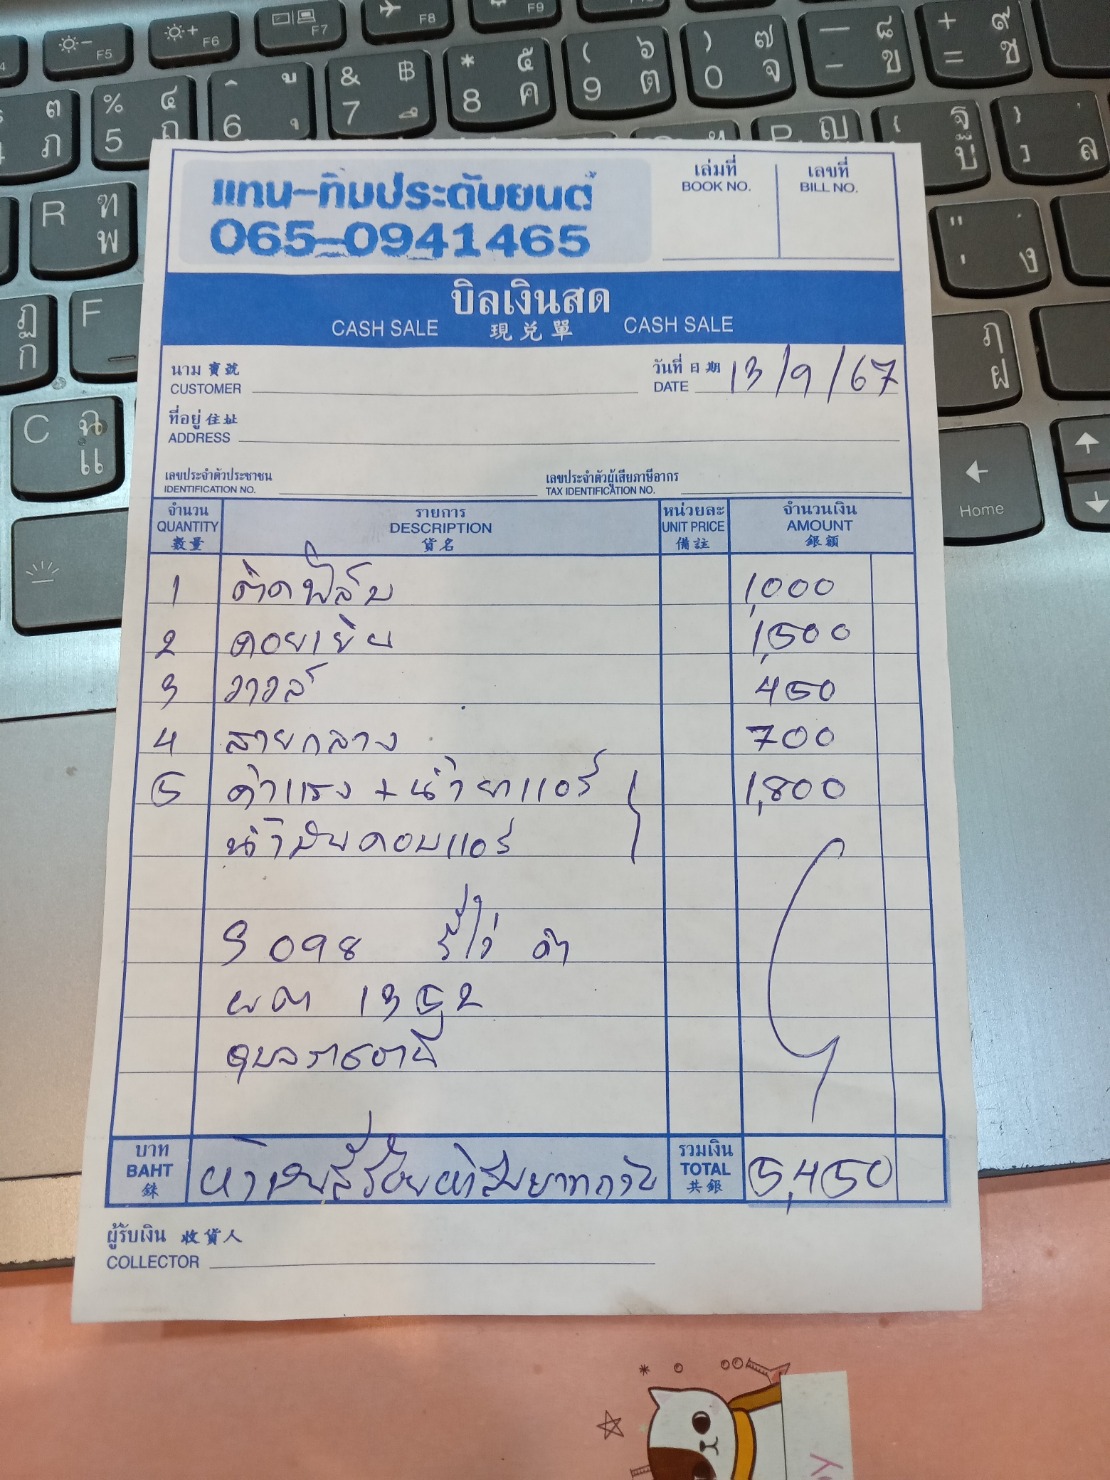 แทน-ทิมประดับยนต์
065-0941465
เล่มที่ เลขที่
BOOK NO. BILL NO.
บิลเงินสด
CASH SALE 現兌單 CASH SALE
นาม 賣號 วันที่ 日期
CUSTOMER DATE 13/9/67
ที่อยู่ 住址
ADDRESS
เลขประจำตัวประชาชน เลขประจำตัวผู้เสียภาษีอากร
IDENTIFICATION NO. TAX IDENTIFICATION NO.
จำนวน รายการ หน่วยละ จำนวนเงิน
QUANTITY DESCRIPTION UNIT PRICE AMOUNT
數量 貨名 備註 銀額
1 ติดฟิล์ม 1,000
2 คอยเย็น 1,500
3 วาวล์ 450
4 สายกลาง 700
5 ค่าแรง + น้ำยาแอร์ 1,800
น้ำมันคอมแอร์
S 098 รีโว่ ดำ
ผต 1352
อุบลราชธานี
บาท รวมเงิน
BAHT ห้าพันสี่ร้อยห้าสิบบาทถ้วน TOTAL 5,450
銖 共銀
ผู้รับเงิน 收貨人
COLLECTOR
F5 F6 F7 F8 F9
% 5 ๔ ถ
ˆ 6 ู ุ
& 7 ฿ ึ
* 8 ๕ ค
( 9 ๖ ต
) 0 ๗ จ
— - ๘ ข
+ = ๙ ช
๓ ภ
R ฑ พ
P ญ
ฐ บ
ล
F
ฏ ก
" ' ง
C ฉ แ
ฦ ฝ
Home